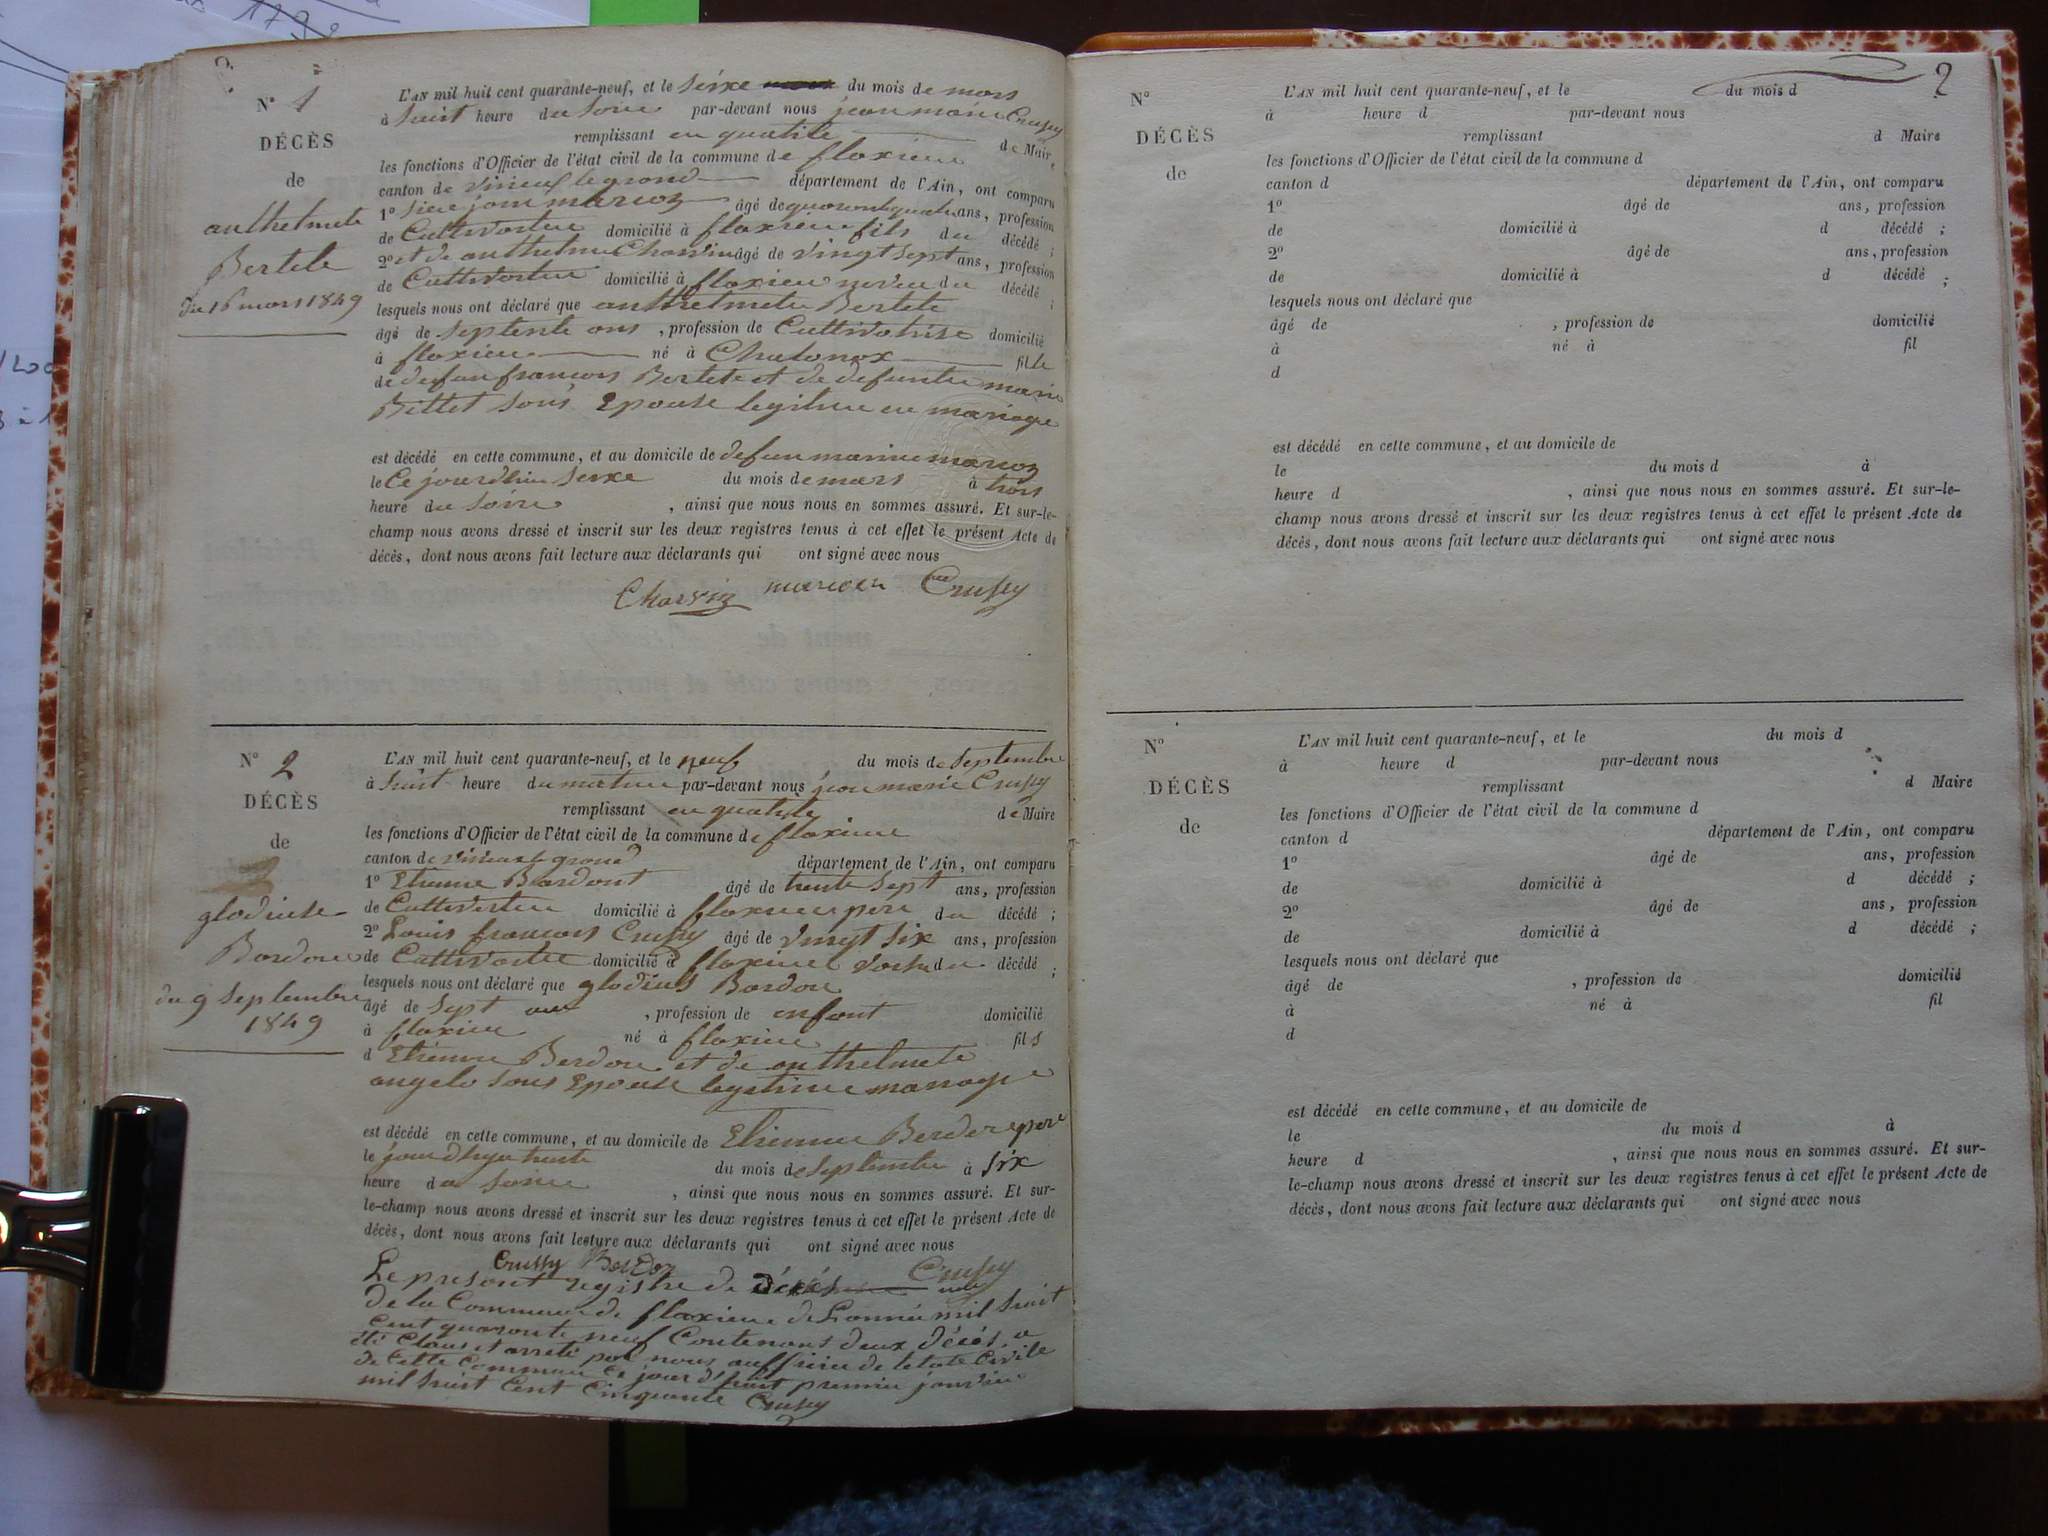 N° 1
DÉCÈS
de
anthelmete
Bertete
du 16 mars 1849
L'AN mil huit cent quarante-neuf, et le seixe du mois de mars
à huit heure du soire par-devant nous jean marie Crussy
remplissant en qualité de Maire
les fonctions d'Officier de l'état civil de la commune de flaxieu
canton de virieu le grand département de l'Ain, ont comparu
1° jean marioz âgé de quarente quatre ans, profession
de Cultivateur domicilié à flaxieu fils du décédé ;
2° et de anthelme Charvin âgé de vingt sept ans, profession
de Cultivateur domicilié à flaxieu neveu du décédé ;
lesquels nous ont déclaré que anthelmete Bertete
âgé de septente ans , profession de Cultivatrise domicilié
à flaxieu né à Chalonox fille
de defun francois Bertete et de defunte marie
Billet sous Epouse legitime en mariage
est décédé en cette commune, et au domicile de defun marioz
le Ce jourdhui seixe du mois de mars à trois
heure du soire , ainsi que nous nous en sommes assuré. Et sur-le-
champ nous avons dressé et inscrit sur les deux registres tenus à cet effet le présent Acte de
décès, dont nous avons fait lecture aux déclarants qui ont signé avec nous
Charvin Crussy
N° 2
DÉCÈS
de
glodiuse
Bordon
du 9 septembre
1849
L'AN mil huit cent quarante-neuf, et le neuf du mois de septembre
à huit heure du matin par-devant nous jean marie Crussy
remplissant en qualité de Maire
les fonctions d'Officier de l'état civil de la commune de flaxieu
canton de virieu le grand département de l'Ain, ont comparu
1° Etienne Bardont âgé de trente sept ans, profession
de Cultivateur domicilié à flaxieu pere du décédé ;
2° Louis francois Crussy âgé de vingt six ans, profession
de Cultivateur domicilié à flaxieu du décédé ;
lesquels nous ont déclaré que glodius Bordon
âgé de sept , profession de enfant domicilié
à flaxieu né à flaxieu fils
d Etienne Berdon et de anthelmete
angelo sous Epouse legitime mariage
est décédé en cette commune, et au domicile de Etienne Berdon pere
le du mois de septembre à six
heure du soire , ainsi que nous nous en sommes assuré. Et sur-
le-champ nous avons dressé et inscrit sur les deux registres tenus à cet effet le présent Acte de
décès, dont nous avons fait lecture aux déclarants qui ont signé avec nous
Crussy Berdon Crussy
Le present registre de décés
de la Commune de flaxieu de Lannée mil huit
Cent quaronte neuf Contenans deux décés a
été Claus et arreté par nous auffisier de letate Civile
de Cette Commune Ce jour d'huit premier janvier
mil huit Cent Cinquante Crussy
2
N°
DÉCÈS
de
L'AN mil huit cent quarante-neuf, et le du mois d
à heure d par-devant nous
remplissant d Maire
les fonctions d'Officier de l'état civil de la commune d
canton d département de l'Ain, ont comparu
1° âgé de ans, profession
de domicilié à d décédé ;
2° âgé de ans, profession
de domicilié à d décédé ;
lesquels nous ont déclaré que
âgé de , profession de domicilié
à né à fil
d
est décédé en cette commune, et au domicile de
le du mois d à
heure d , ainsi que nous nous en sommes assuré. Et sur-le-
champ nous avons dressé et inscrit sur les deux registres tenus à cet effet le présent Acte de
décès, dont nous avons fait lecture aux déclarants qui ont signé avec nous
N°
DÉCÈS
de
L'AN mil huit cent quarante-neuf, et le du mois d
à heure d par-devant nous
remplissant d Maire
les fonctions d'Officier de l'état civil de la commune d
canton d département de l'Ain, ont comparu
1° âgé de ans, profession
de domicilié à d décédé ;
2° âgé de ans, profession
de domicilié à d décédé ;
lesquels nous ont déclaré que
âgé de , profession de domicilié
à né à fil
d
est décédé en cette commune, et au domicile de
le du mois d à
heure d , ainsi que nous nous en sommes assuré. Et sur-
le-champ nous avons dressé et inscrit sur les deux registres tenus à cet effet le présent Acte de
décès, dont nous avons fait lecture aux déclarants qui ont signé avec nous